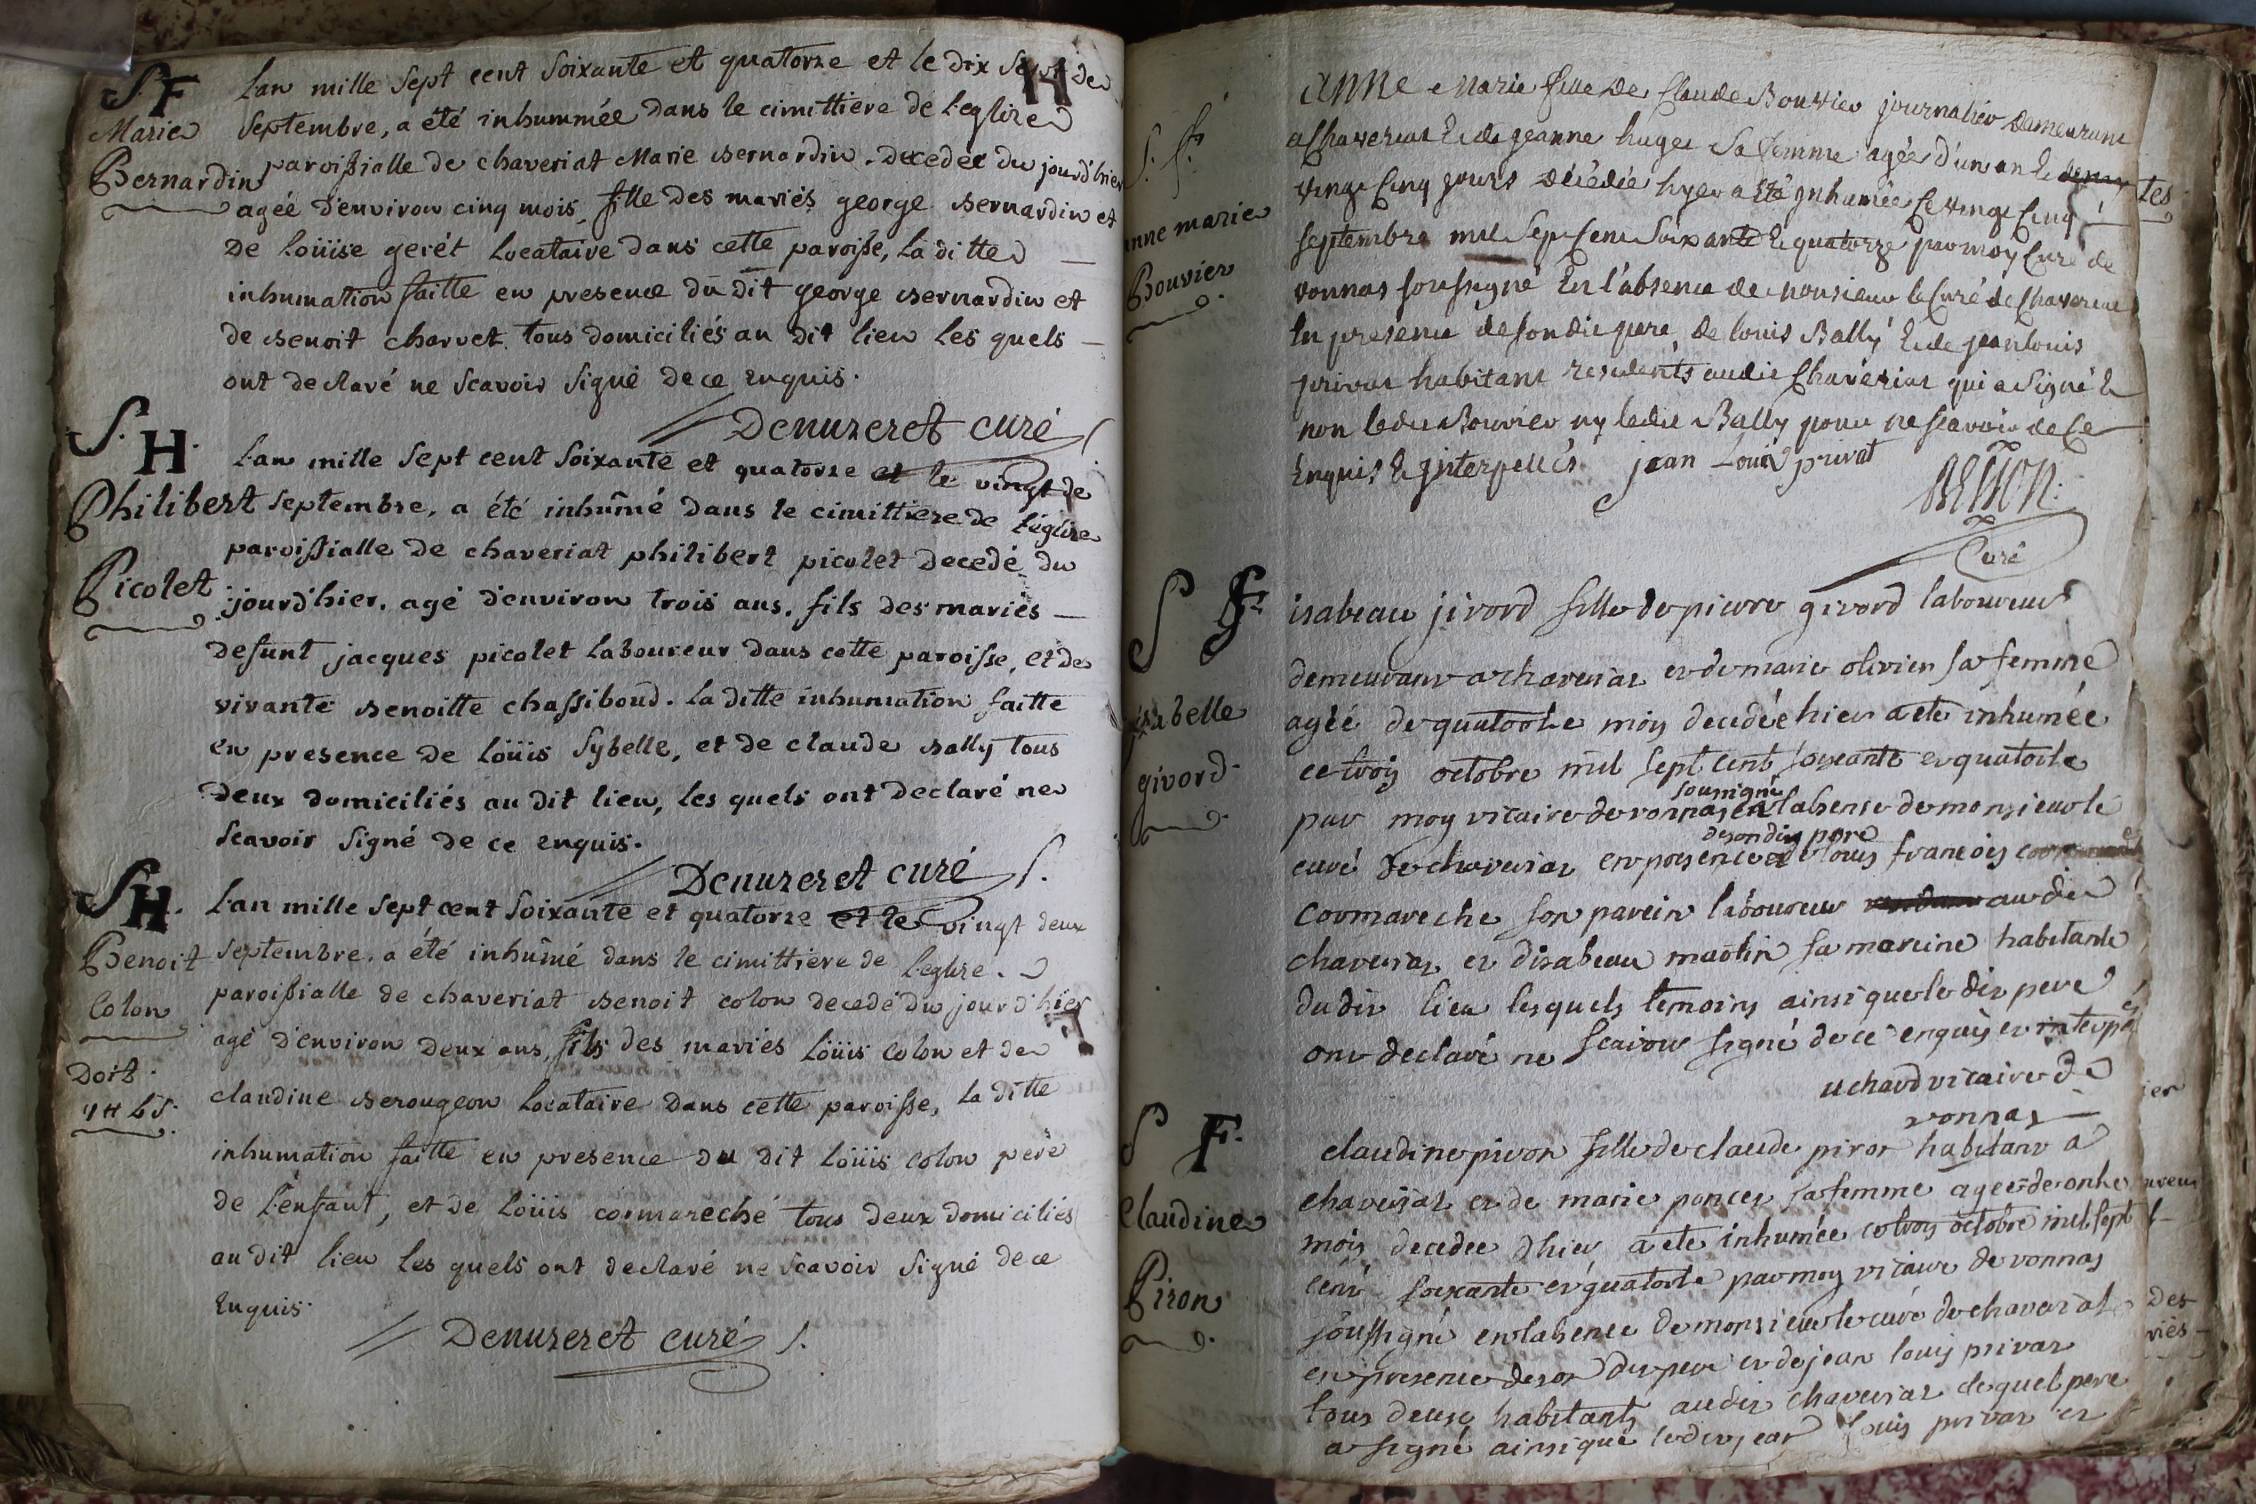 S. F
Marie
Bernardin
L'an mille sept cent soixante et quatorze et le dix sept de
septembre, a été inhummée dans le cimittiere de l'eglize
paroissialle de chaveriat Marie Bernardin. Decedée du jourd'hier
agée d'environ cinq mois, fille des mariés george Bernardin et
De Loüise gerét Locataire dans cette paroisse, La ditte
inhumation faitte en presence du dit george Bernardin et
de Benoit charvet tous domiciliés au dit lieu les quels
ont declaré ne scavoir signé de ce enquis.
Denuzeret curé
S. H.
Philibert
Picolet
L'an mille sept cent soixante et quatorze et le vingt de
septembre, a été inhumé dans le cimittiere de l'églize
paroissialle de chaveriat philibert picolet decedé du
jourd'hier. agé d'environ trois ans. fils des mariés
defunt jacques picolet Laboureur dans cette paroisse, et de
vivante Benoitte chassiboud. La ditte inhumation faitte
en presence de Loüis Sybelle, et de claude Bally tous
deux domiciliés au dit lieu, les quels ont declaré ne
scavoir signé de ce enquis.
Denuzeret curé
S H.
Benoit
Colon
Doit
L'an mille sept cent soixante et quatorze et le vingt deux
septembre. a été inhumé dans le cimittiere de l'eglize.
paroissialle de chaveriat Benoit colon decedé du jourd'hier
agé d'environ deux ans, fils des mariés Loüis colon et de
claudine Berougeon Locataire dans cette paroisse, La ditte
inhumation faitte en presence du dit Loüis colon pere
de l'enfant, et de Loüis cormareché tous deux domiciliés
au dit lieu les quels ont declaré ne scavoir signé de ce
enquis.
Denuzeret curé
S. f.
anne marie
Bouvier
Anne Marie fille de Claude Bouvier journalier demeurant
a Chaveriat & de jeanne huget sa femme agée d'un an &
vingt cinq jours décédée hyer a été inhumée ce vingt cinq
septembre mil sept cent soixante & quatorze par moy Curé de
vonnas soussigné En l'absence de monsieur le Curé de Chaveriat
En presence de son dit pere, de louis Bally & de jean louis
privat habitant residents audit Chaveriat qui a signé &
non ledit Bouvier ny ledit Bally pour ne scavoir de ce
Enquis & interpellés. jean Louis privat
Curé
S F.
isabelle
givord
isabeau jivord fille de pierre givord laboureur
demeurant a chaveriat et de marie olivier sa femme
agéé de quatorze mois decedéé hier a eté inhumée
ce trois octobre mil sept cent soixante et quatorze
soussigné
par moy vicaire de vonnas en labsense de monsieur le
de son dit pere
curé de chaveriat en presence et de louis françois
cormareche son parein laboureur audit
chaveriat et disabeau martin sa mareine habitante
dudit lieu lesquels temoins ainsi que le dit pere
ont declaré ne scavoir signé de ce enquis et interpellés
uchard vicaire de
vonnas
S F.
Claudine
Piron
claudine piron fille de claude piron habitant a
chaveriat et de marie poncet sa femme ageé de onze
mois decedee dhier a ete inhumée ce trois octobre mil sept
cent soixante et quatorze par moy vicaire de vonnas
soussigné en labsence de monsieur le curé de chaveriat
en presence de son dit pere et de jean louis privat
tous deux habitants audit chaveriat lequel pere
a signé ainsi que ledit jean louis privat et